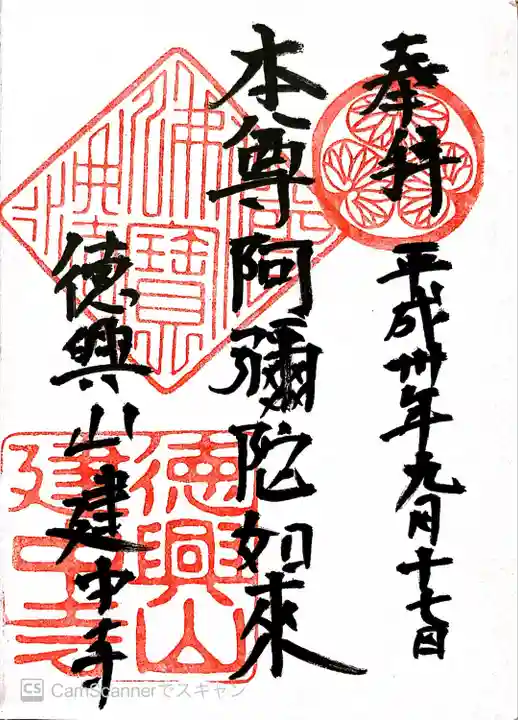 奉拝
平成卅年九月十七日
本尊阿彌陀如來
徳興山建中寺
佛
寶
徳興山
建中寺
CS CamScannerでスキャン